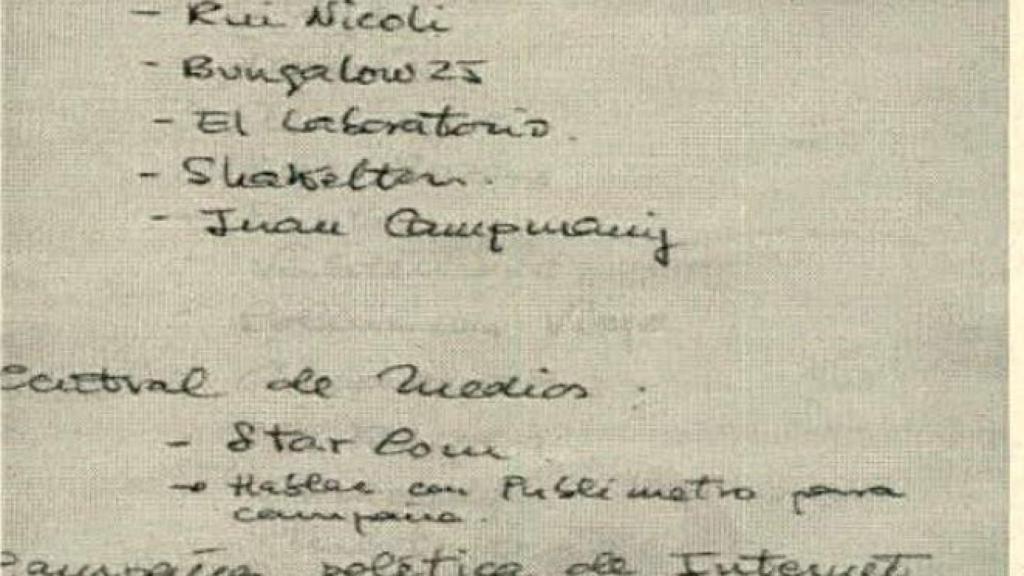 - Rui Nicoli
- Bungalow 25
- El Laboratorio.
- Shakelton.
- Juan Campmany
Central de Medios:
- Star Com
→ Hablar con Publimetro para
campaña.
Campaña política de Internet